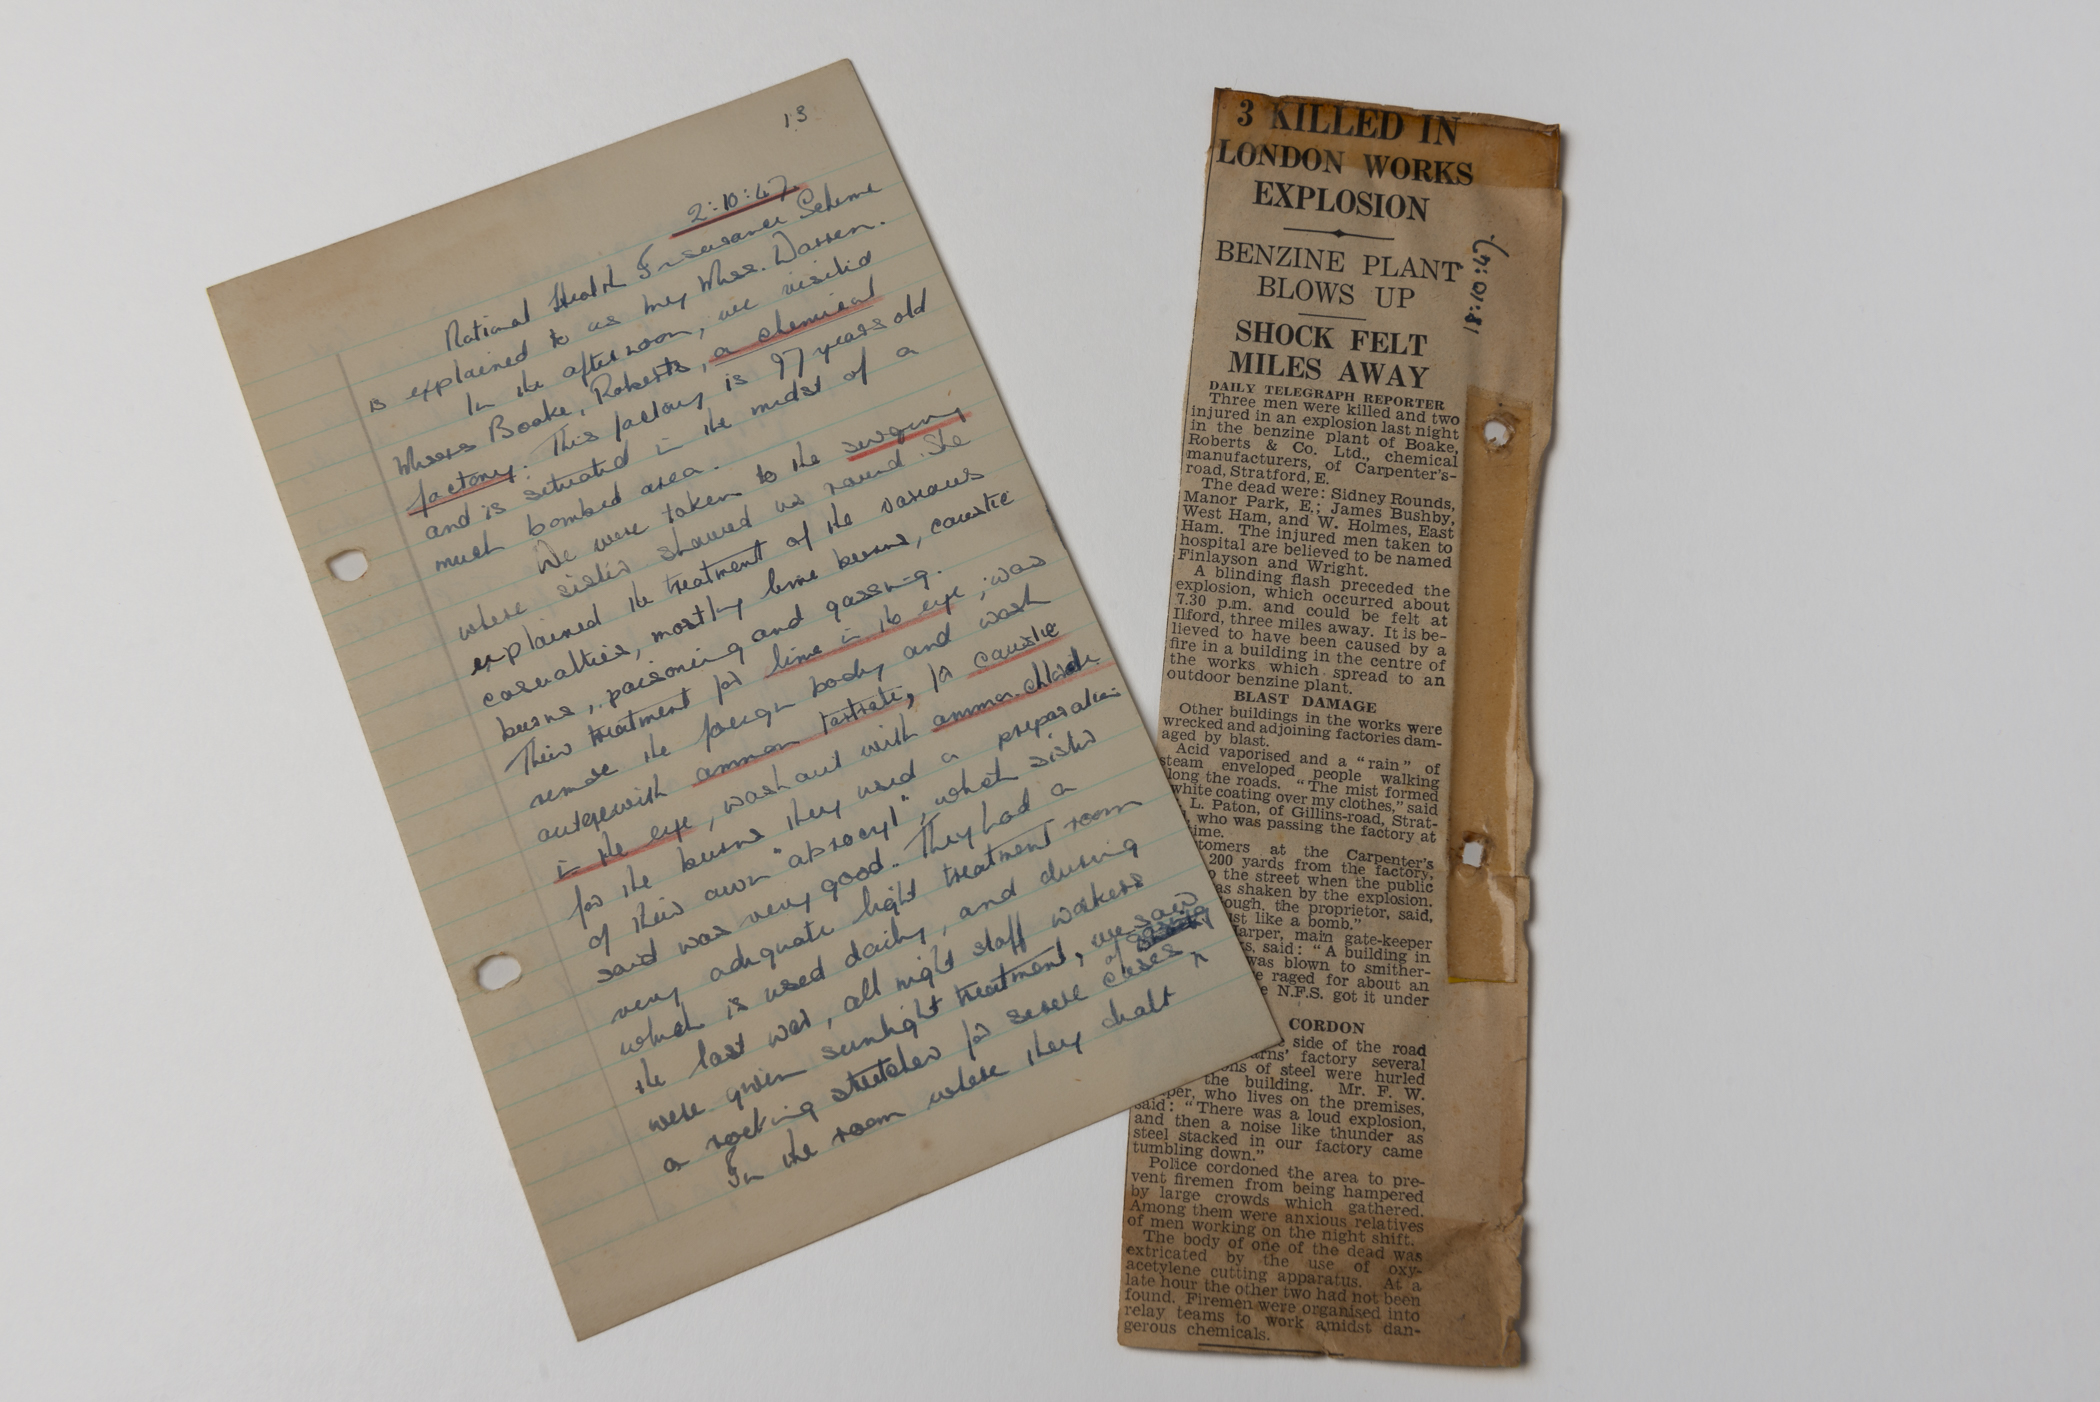 13
2:10:47
National Health Insurance Scheme
is explained to us by Miss. Warren.
In the afternoon, we visited
Messrs Boake, Roberts, a chemical
factory. This factory is 97 years old
and is situated in the midst of a
much bombed area.
We were taken to the surgery
where sister showed us round. She
explained the treatment of the various
casualties, mostly lime burns, caustic
burns, poisoning and gassing.
Their treatment for lime in the eye; was
remove the foreign body and wash
out with ammon tartrate, for caustic
in the eye, wash out with ammon. chloride
for the burns they used a preparation
of their own "abrocyl", which sister
said was very good. They had a
very adequate light treatment room
which is used daily, and during
the last war, all night staff workers
were given sunlight treatment, we saw
a rocking stretcher for severe cases of
In the room where they dealt
3 KILLED IN
LONDON WORKS
EXPLOSION
BENZINE PLANT
BLOWS UP
18:10:47.
SHOCK FELT
MILES AWAY
DAILY TELEGRAPH REPORTER
Three men were killed and two
injured in an explosion last night
in the benzine plant of Boake,
Roberts & Co. Ltd., chemical
manufacturers, of Carpenter's-
road, Stratford, E.
The dead were: Sidney Rounds,
Manor Park, E.; James Bushby,
West Ham, and W. Holmes, East
Ham. The injured men taken to
hospital are believed to be named
Finlayson and Wright.
A blinding flash preceded the
explosion, which occurred about
7.30 p.m. and could be felt at
Ilford, three miles away. It is be-
lieved to have been caused by a
fire in a building in the centre of
the works which spread to an
outdoor benzine plant.
BLAST DAMAGE
Other buildings in the works were
wrecked and adjoining factories dam-
aged by blast.
Acid vaporised and a "rain" of
steam enveloped people walking
long the roads. "The mist formed
white coating over my clothes," said
L. Paton, of Gillins-road, Strat-
who was passing the factory at
time.
tomers at the Carpenter's
200 yards from the factory,
o the street when the public
as shaken by the explosion.
ough, the proprietor, said,
ust like a bomb."
Harper, main gate-keeper
ks, said: "A building in
was blown to smither-
e raged for about an
e N.F.S. got it under
CORDON
side of the road
arns' factory several
ons of steel were hurled
the building. Mr. F. W.
per, who lives on the premises,
said: "There was a loud explosion,
and then a noise like thunder as
steel stacked in our factory came
tumbling down."
Police cordoned the area to pre-
vent firemen from being hampered
by large crowds which gathered.
Among them were anxious relatives
of men working on the night shift.
The body of one of the dead was
extricated by the use of oxy-
acetylene cutting apparatus. At a
late hour the other two had not been
found. Firemen were organised into
relay teams to work amidst dan-
gerous chemicals.